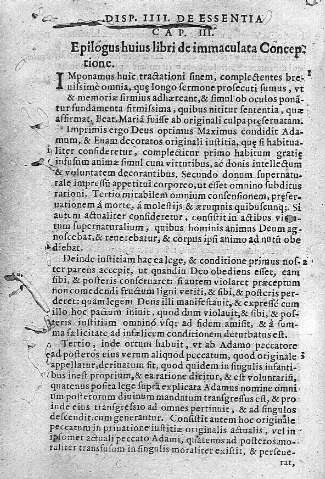 DISP. IIII. DE ESSENTIA
CAP. III.
Epilogus huius libri de immaculata Concep
tione.
IMponamus huic tractationi finem, complectentes bre-
uissimè omnia, quę longo sermone prosecuti sumus, vt
& memoriæ firmius adhæreant, & simul ob oculos ponã-
tur fundamenta firmissima, quibus nititur sententia, quæ
affirmat, Beat. Mariã fuisse ab originali culpa præseruatam.
Imprimis ergo Deus optimus Maximus condidit Ada-
mum, & Euam decoratos originali iustitia, quę si habitua-
liter consideretur, complectitur primo habitum gratię
infusum animæ simul cum virtutibus, ac donis intellectum
& voluntatem decorantibus. Secundo donum supernatu-
rale impressũ appetitui corporeo, ut esset omnino subditus
rationi. Tertio mirabilem omnium consensionem, præser-
uationem á morte, á molestijs & ægrumnis quibuscunq;. Si
autem actualiter consideretur, consistit in actibus virtu-
tum supernaturalium, quibus hominis animus Deum ag-
noscebat, & reuerebatur, & corpus ipsi animo ad nutũ obe
diebat.
Deinde iustitiam hac ea lege, & conditione primus nos-
ter parens accepit, ut quandiu Deo obediens esset, eam
sibi, & posteris conseruaret: si autem violaret præceptum
non comedendi fructum ligni vetiti, & sibi, & posteris per-
deret: quam legem Deus illi manifestauit, & expresse cum
illo hoc pacium iniuit, quod dum violauit, & sibi, & pos-
teris iustitiam omninò vsq; ad fidem amisit, & à sum-
ma fœlicitate ad infœlicem conditionem deturbatus est.
Tertio, inde ortum habuit, vt ab Adamo peccatore
ad posteros eius verum aliquod peccatum, quod originale
appellatur, deriuatum sit, quod quidem in singulis infanti-
bus inest proprium, & ea ratione dicitur, & est voluntariũ,
quatenus posita lege supra explicata Adamus nomine omni
um posterorum diuinum mandatum transgressus est, & pro
inde eius transgressio ad omnes pertinuit, & ad singulos
descendit cum generantur. Consistit autem hoc originale
peccatum in priuatione iustitiæ originalis actualis, vel in
ipsomet actuali peccato Adami, quatenus ad posteros mo-
raliter transfusum in singulis moraliter existit, & perseue-
rat,